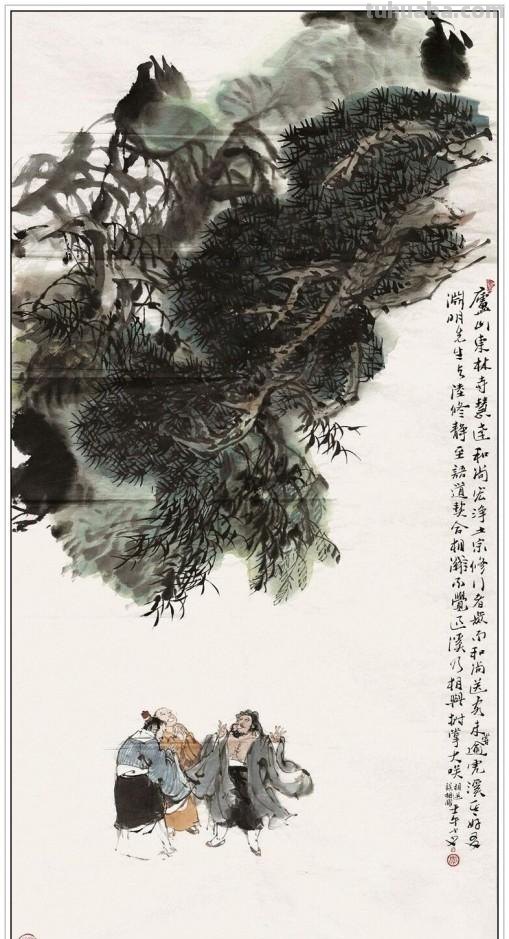 tuhuaba.com
廬山東林寺慧遠和尚宏淨土宗修行者眾而和尚送客未嘗逾虎溪一日好名
淵明先生與陸修靜至語道契合相將不覺過溪乃相與拊掌大咲
壬午